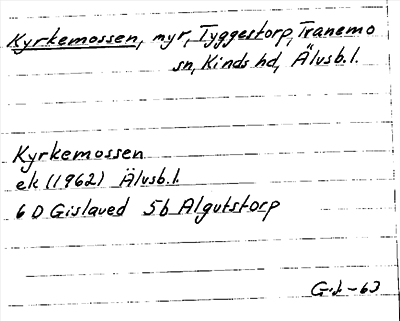 Kyrkemossen, myr, Tyggestorp, Tranemo
sn, Kinds hd, Älvsb. l.
Kyrkemossen
ek (1962) Älvsb. l.
6 D Gislaved 5b Algutstorp